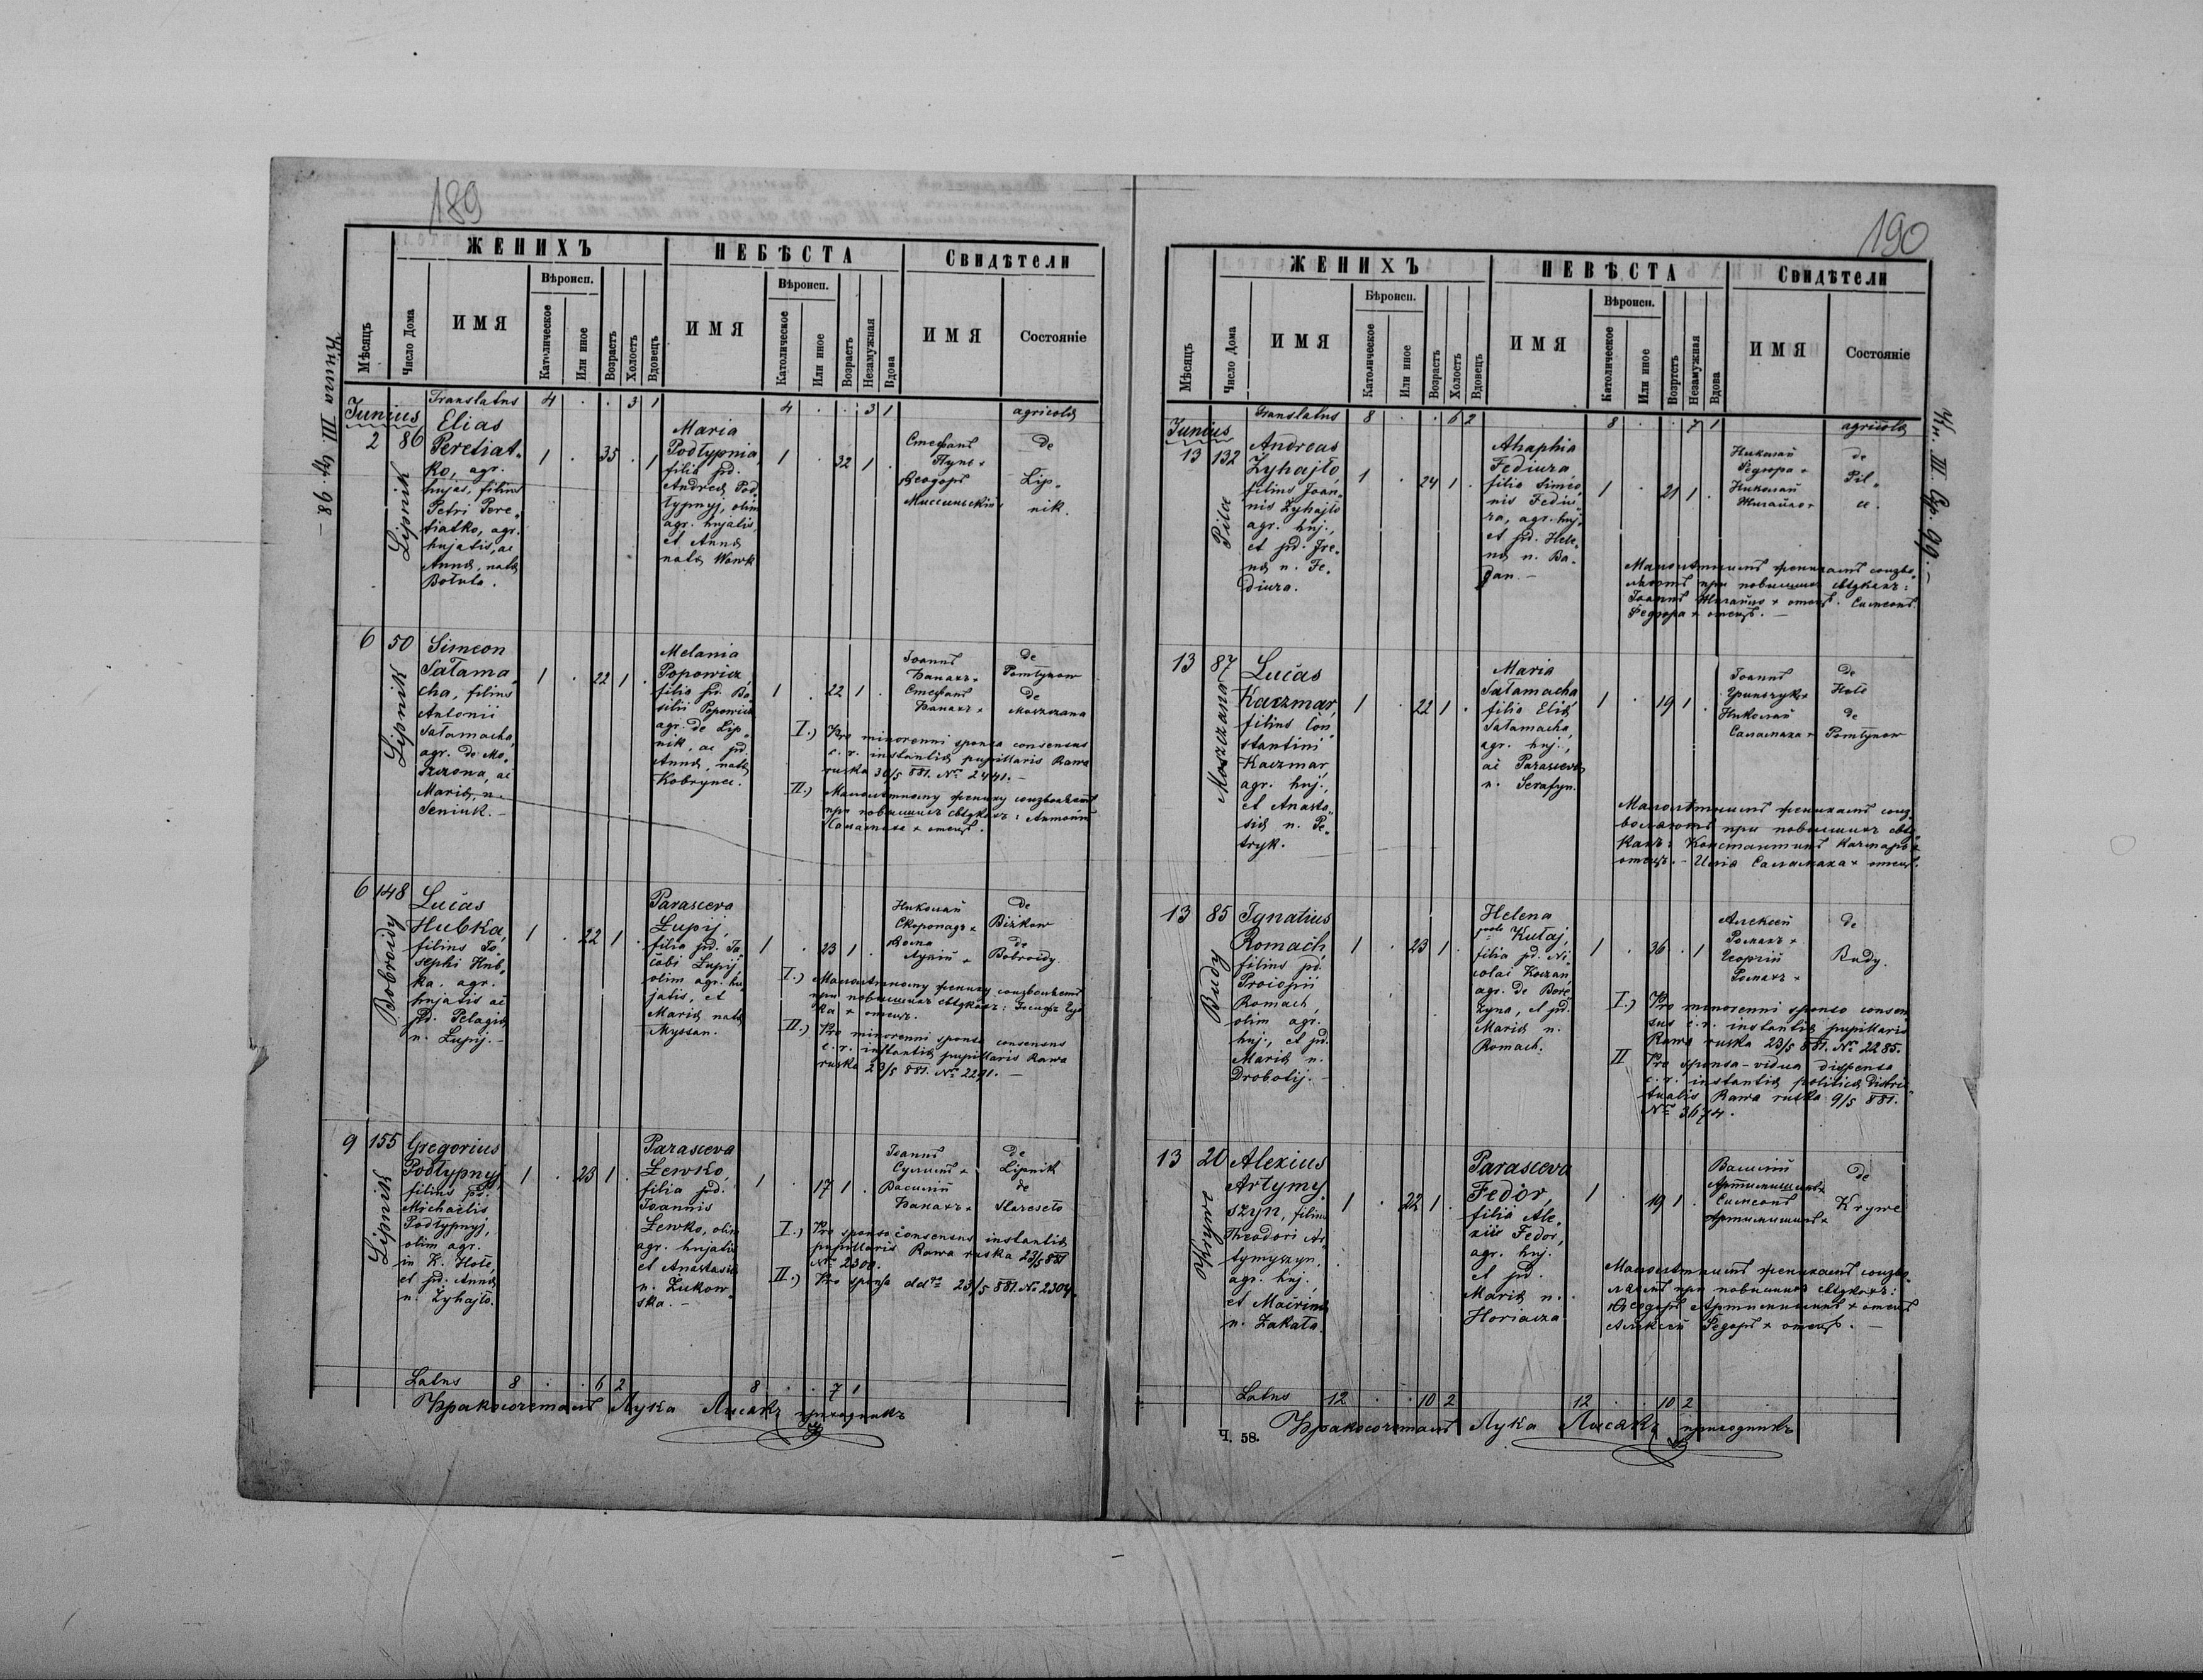 189
Книга III. Стр. 98. —
ЖЕНИХЪ
НЕБѢСТА
Свидѣтели
Мѣсяцъ
Число Дома
ИМЯ
Вѣроисп.
Католическое
Или иное
Возрастъ
Холостъ
Вдовецъ
ИМЯ
Вѣроисп.
Католическое
Или иное
Возрастъ
Незамужная
Вдова
ИМЯ
Состояніе
Translatus 4 . . 3 1 4 . . 3 1
Junius
agricolæ
2 86
Lipnik
Elias
Peretiat„
ko, agr.
hujas, filius
Petri Pere„
tiatko, agr.
hujatis, ac
Annæ, natæ
Botuto.
1 . 35 . 1
Maria
Podłypnia,
filia pd.
Andreæ Pod„
łypnyj, olim
agr. hujatis,
et Annæ
natæ Wowk
1 . 32 1 .
Стефанъ
Пунь +
Ѳеодоръ
Миссинскій
de
Lip„
nik.
6 50
Lipnik
Simeon
Sałama„
cha, filius
Antonii
Sałamacha,
agr. de Mo„
szczona, ac
Mariæ, n.
Seniuk. —
1 . 22 1 .
Melania
Popowicz,
filia pd. Ba„
silii Popowicz
agr. de Lip„
nik, ac pd.
Annæ, natæ
Kobrynec.
1 . 22 1 .
Іоаннъ
Банахъ +
Стефанъ
Банахъ +
de
Pomłynow
de
Moszczana
I.) Pro minorenni sponsa consensus
c. r. instantiæ pupillaris Rawa
ruska 30/5 881. № 2441. —
II.) Малолѣтному жениху соизволяетъ
при повышихъ свѣдкахъ: Антоній
Саламаха + отецъ.
6 148
Bobroidy
Lucas
Hubka,
filius Jo„
sephi Hub„
ka, agr.
hujatis ac
pd. Pelagiæ
n. Łupij. —
1 . 22 1 .
Parasceva
Łupij,
filia pd. Ja„
cobi Łupij
olim agr. hu„
jatis, et
Mariæ natæ
Myssan.
1 . 23 1 .
Николай
Скоропадъ +
Ѳома
Лупій +
de
Biżkow
de
Bobroidy.
I.) Малолѣтному жениху соизволяетъ
при повышихъ свѣдкахъ: Іосифъ Губ„
ка + отецъ.
II.) Pro minorenni sponsa consensus
c. r. instantiæ pupillaris Rawa
ruska 23/5 881. № 2291. —
9 155
Lipnik
Gregorius
Podłypnyj
filius pd.
Michaelis
Podłypnyj,
olim agr.
in K. Hołe,
et pd. Annæ
n. Żyhajło.
1 . 23 1 .
Parasceva
Lewko,
filia pd.
Joannis
Lewko, olim
agr. hujatis
et Anastasiæ
n. Żukow„
ska. —
1 . 17 1 .
Іоаннъ
Сулимъ +
Василій
Банахъ +
de
Lipnik
de
Hareseto
I.) Pro sponso consensus instantiæ
pupillaris Rawa ruska 23/5 881
№ 2300.
II.) Pro sponsa ddto 23/5 881. № 2304.
Latus 8 . . 6 2 8 . . 7 1
Бракосочеталъ Лука Лисакъ приходникъ
190
Кн. III. Стр. 99. —
ЖЕНИХЪ
НЕВѢСТА
Свидѣтели
Мѣсяцъ
Число Дома
ИМЯ
Бѣроисп.
Католическое
Или иное
Возрастъ
Холостъ
Вдовецъ
ИМЯ
Вѣроисп.
Католическое
Или иное
Возрстъ
Незамужная
Вдова
ИМЯ
Состояніе
Translatus 8 . . 6 2 8 . . 7 1
Junius
agricolæ
13 132
Piła
Andreas
Żyhajło,
filius Joan„
nis Żyhajło
agr. huj.,
et pd. Ire„
næ n. Fe„
diura.
1 . 24 1 .
Ahaphia
Fediura,
filia Simeo„
nis Fediu„
ra, agr. huj.
et pd. Hele„
næ n. Ba„
Dan. —
1 . 21 1 .
Николай
Федюра +
Николай
Жигайло +
de
Pił„
a.
Малолѣтнымъ женихамъ соизво„
ляютъ при повышихъ свѣдкахъ:
Іоаннъ Жигайло + отецъ. Симеонъ
Федюра + отецъ. —
13 87
Moszczana
Lucas
Kaczmar,
filius Con„
stantini
Kaczmar,
agr. huj.,
et Anasta„
siæ n. Pe„
tryk.
1 . 22 1 .
Maria
Sałamacha,
filia Eliæ
Sałamacha,
agr. huj.,
ac Parascevæ
n. Serafyn.
1 . 19 1 .
Іоаннъ
Гринчукъ +
Николай
Саламаха +
de
Hołe
de
Pomłynow
Малолѣтнымъ женихамъ соиз„
воляютъ при повышихъ свѣд„
кахъ: Константинъ Качмаръ +
отецъ. — Илія Саламаха + отецъ.
13 85
Budy
Ignatius
Romach,
filius pd.
Procopii
Romach,
olim agr.
huj., et pd.
Mariæ n.
Drobotij. —
1 . 23 1 .
Helena
Kułaj,
filia pd. Ni„
colai Kozan,
agr. de Bore„
zyna, et pd.
Mariæ n.
Romach.
1 . 36 . 1
Алексей
Ромахъ +
Георгій
Ромахъ +
de
Budy.
I.) Pro minorenni sponso consen„
sus c. r. instantiæ pupillaris
Rawa ruska 23/5 881. № 2285.
II Pro sponsa-vidua dispensa
c. r. instantiæ politicæ distri„
ctualis Rawa ruska 9/5 881.
№ 3674.
13 20
Krywe
Alexius
Artymy„
szyn, filius
Theodori Ar„
tymyszyn,
agr. huj.,
et Macrinæ
n. Zakała.
1 . 22 1 .
Parasceva
Fedor,
filia Ale„
xii Fedor,
agr. huj.
et pd.
Mariæ n.
Horiacza
1 . 19 1 .
Василій
Артимишинъ +
Симеонъ
Артимишинъ +
de
Krywe
Малолѣтнымъ женихамъ соизво„
ляютъ при повышихъ свѣдкахъ:
Ѳеодоръ Артимишинъ + отецъ
Алексей Федоръ + отецъ. —
Latus 12 . . 10 2 12 . . 10 2
Ч. 58.
Бракосочеталъ Лука Лисакъ приходникъ